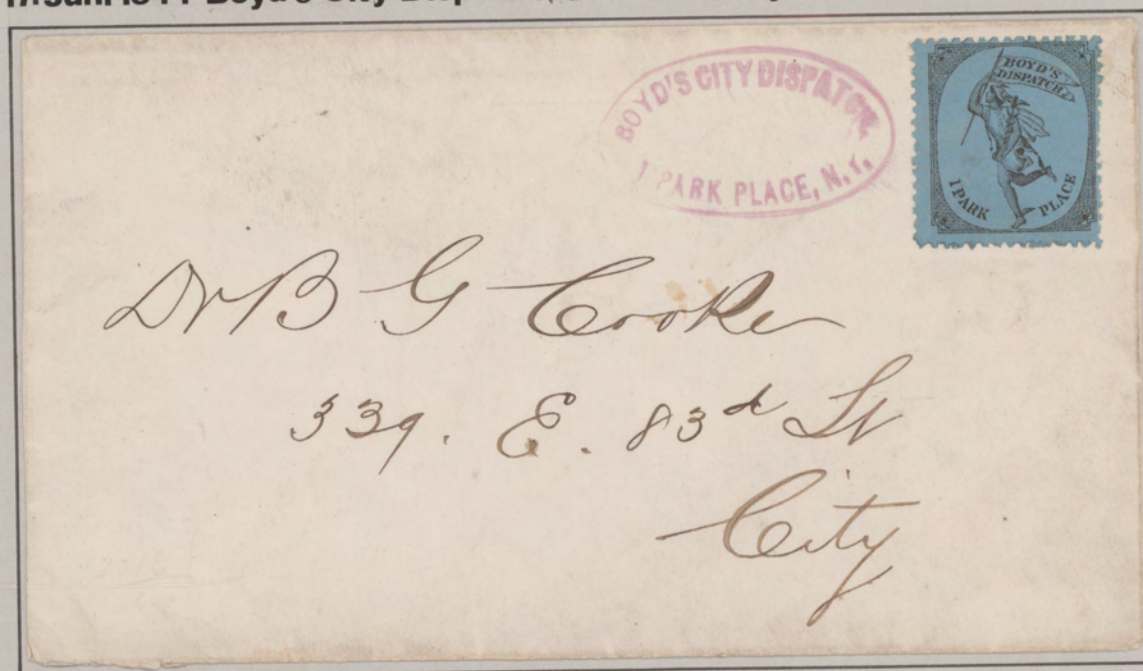 BOYD'S CITY DISPATCH.
1 PARK PLACE, N.Y.
BOYD'S
DISPATCH
1 PARK PLACE
Dr B G Cooke
339. E. 83d St
City